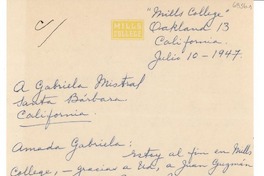 "Mills College"
Oakland 13
California.
Julio 10-1947.
c/
MILLS
COLLEGE
A Gabriela Mistral
Santa Bárbara
California.
Amada Gabriela:
Estoy al fin en Mills
College, - gracias a Ud, a Juan Guzmán